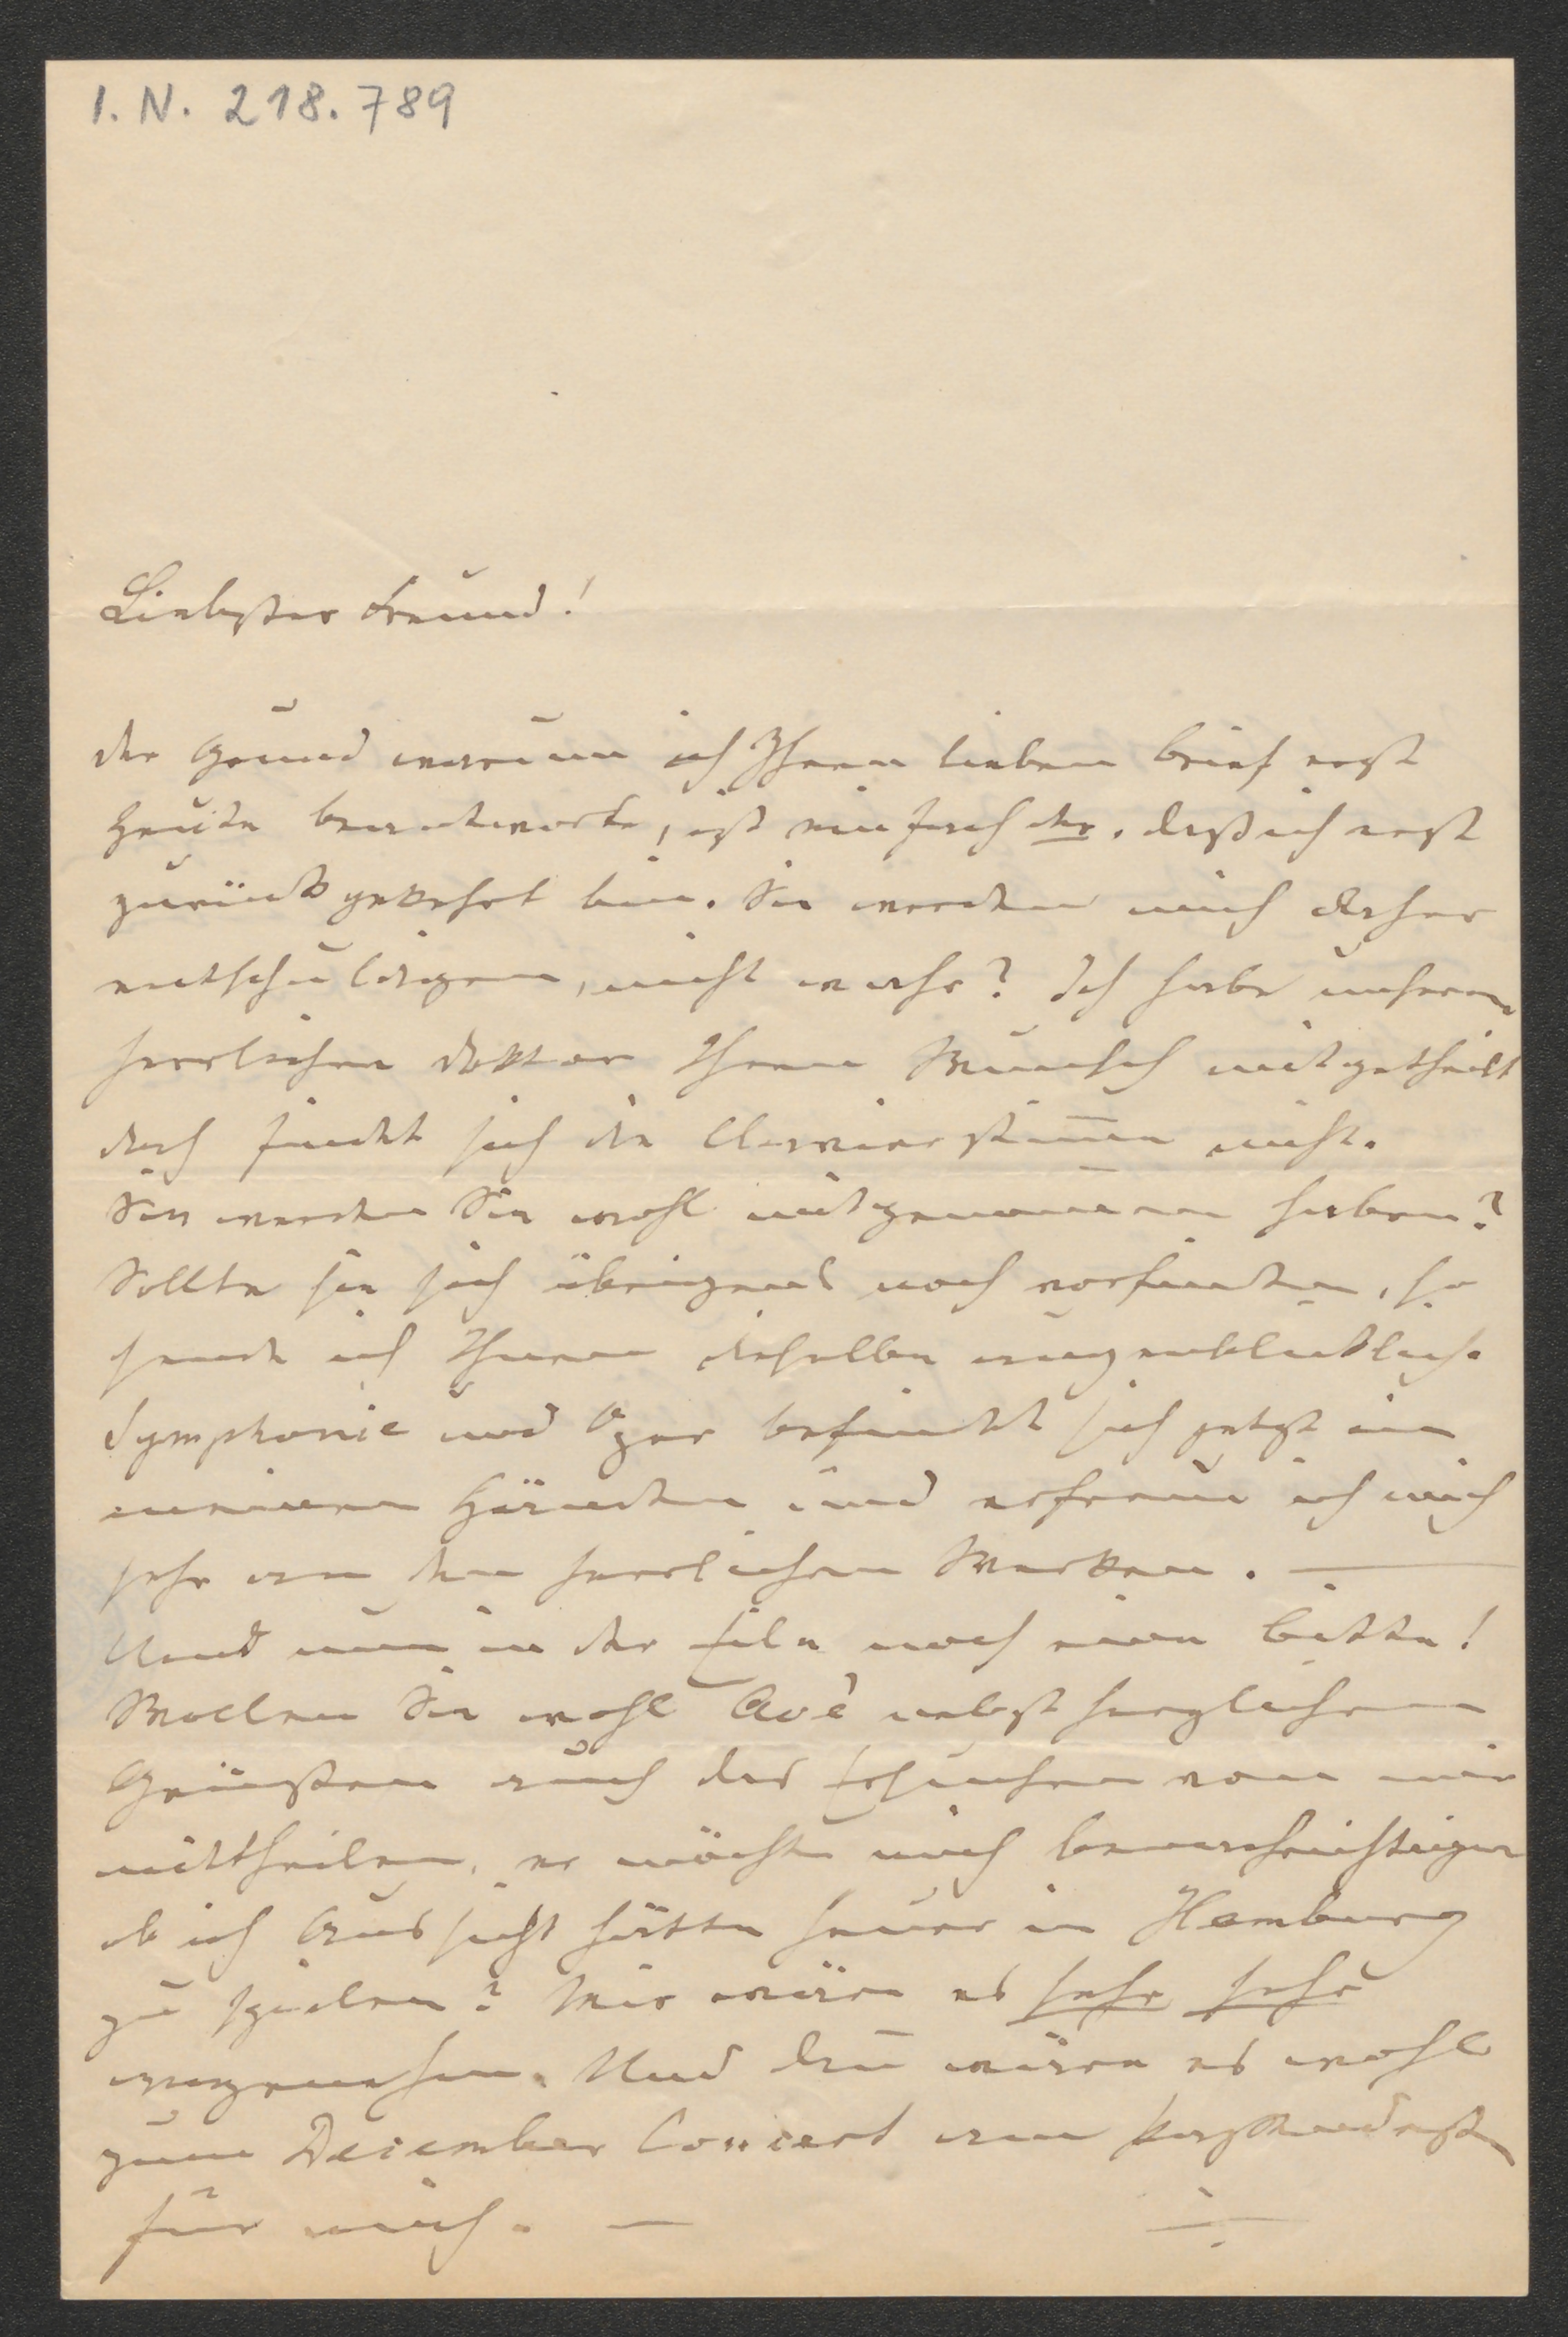 I. N. 218.789
Liebster Freund!
der Grund warum ich Ihren lieben Brief erst
heute beantworte, ist einfach der, daß ich erst
zurück gekehrt bin. Sie werden mich daher
entschuldigen, nicht wahr? Ich habe unserem
herrlichen Doktor Ihren Wunsch mitgetheilt
doch findet sich die Clavierstimme nicht.
Sie werden Sie wohl mitgenommen haben?
Sollte sie sich übrigens noch vorfinden, so
sende ich Ihnen dieselbe augenblicklich.
Symphonie und Oper befindet sich jetzt in
meinen Händen und erfreue ich mich
sehr an den herrlichen Werken. —
Und nun in der Eile noch eine Bitte!
Wollen Sie wohl Avé nebst herzlichen
Grüßen auch das Ersuchen von mir
mittheilen, er möchte mich benachrichtigen
ob ich Aussicht hätte heuer in Hamburg
zu spielen? Mir wäre es sehr sehr
angenehm. Und dann wäre es wohl
zum December Concert am passendsten
für mich. —